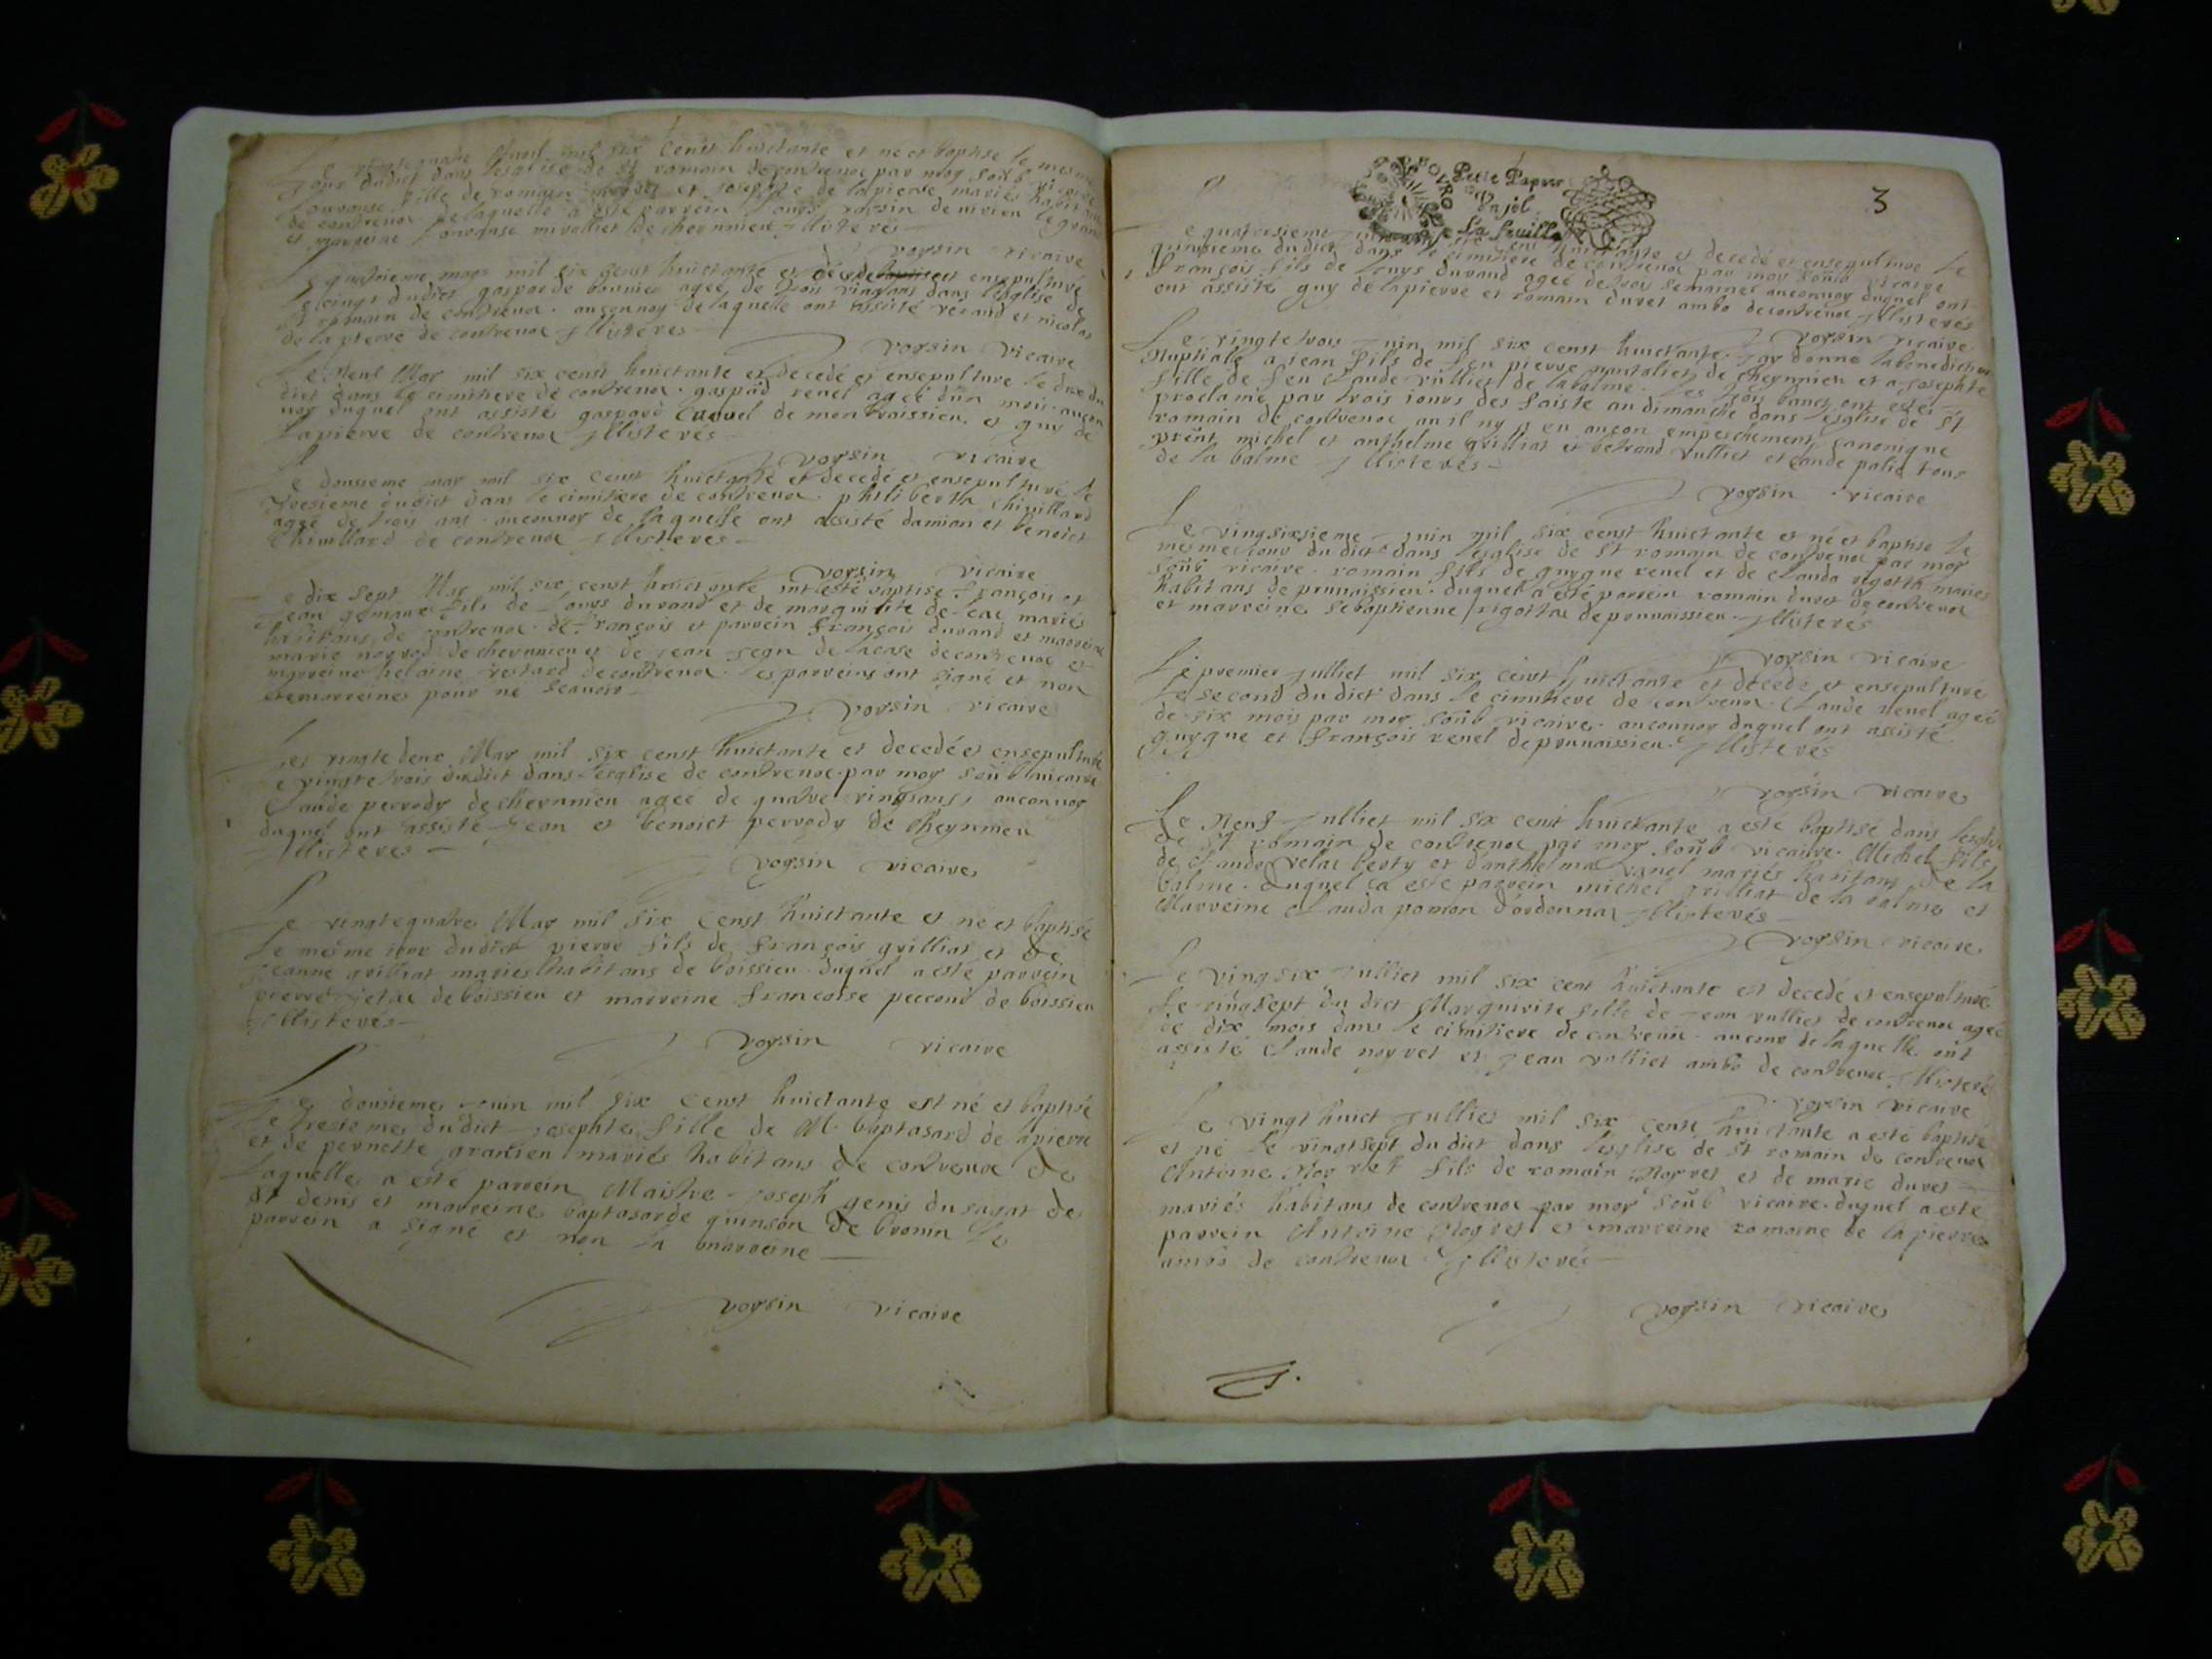 Le vingtequatre Avril mil six censt huictante et né et baptise le mesme
jour dudict dans lesglise de St romain de contrevoz par moy soub vicaire
fille de romain et josephte de lapierre mariés habitans
de contrevoz de laquelle a esté parrein Louys voysin de virieu le grand
et marreine de cheynnieu Illisterés
voysin vicaire
Le quatrieme may mil six censt huictante et decedé et ensepulturé
le cinqs dudict gasparde bonnier ageé de trois vingtans dans lesglise de
St romain de contrevoz. auconvoy de laquelle ont assisté verand et nicolas
de la pierre de contrevoz Illisterés
voysin vicaire
Le Neuf May mil six censt huictante et decedé et ensepulturé le dix du
dict dans le cimitiere de contrevoz. gaspard renel ageé d'un mois. aucon
voy duquel ont assisté gaspard Cuquel de montbraissieu et guy de
lapierre de contrevoz Illisterés
voysin vicaire
Le dousieme may mil six censt huictante et decedé et ensepulturé le
tresieme dudict dans le cimitiere de contrevoz. philiberth Chivillard
ageé de trois ans. auconvoy de laquelle ont assisté damian et benoict
Chivillard de contrevoz Illisterés
voysin vicaire
Le dix sept May mil six censt huictante ont esté baptisé françois et
Jean gemaux fils de Louys durand et de marguerite de leac mariés
habitans de contrevoz. de françois et parrein françois durand et marreine
marie noyrod de cheynnieu et de jean jean de lacase de contrevoz et
marreine helaine restard de contrevoz. les parreins ont signé et non
les marreines pour ne scavoir
voysin vicaire
Le vingte deux May mil six censt huictante et decedé et ensepulturé
le vingte trois dudict dans lesglise de contrevoz par moy soub vicaire
Claude perrody de cheynnieu ageé de quatre vingtans auconvoy
duquel ont assisté Jean et benoict perrody de cheynnieu
Illisterés
voysin vicaire
Le vingtequatre May mil six Censt huictante et né et baptisé
le mesme jour dudict pierre fils de françois grilliat et de
jeanne grilliat mariés habitans de boissieu duquel a esté parrein
pierre jetaz de boissieu et marreine francoise peccoud de boissieu
Illisterés
voysin vicaire
Le dousieme juin mil six Censt huictante est né et baptisé
le tresieme dudict josephte fille de M. baptasard de lapierre
et de pernette granien mariés habitans de contrevoz de
laquelle a esté parrein Maistre joseph genis dusagat de
St denis et marreine baptasarde quinson de bronin le
parrein a signé et non la marreine
voysin vicaire
3
Petit Papier
Un sol
La feuille
Le quatresieme juin mil six censt huictante et decedé et ensepulturé le
quinsieme dudict dans le cimitiere de contrevoz par moy soub vicaire
françois fils de Louys durand ageé de trois semaines auconvoy duquel ont
ont assisté guy delapierre et romain duret ambo de contrevoz Illisterés
voysin vicaire
Le vingtetrois juin mil six censt huictante. Jay donné labenediction
Nuptialle a jean fils de feu pierre pantaliet de cheynnieu et a josephte
fille de feu Claude vulliet de labalme. les trois bancs ont estés
proclamé par trois iours des faiste au dimanche dans lesglise de St
romain de contrevoz ou il ny a eu aucon empeschement canonique
prént michel et anthelme grilliat et betrand vulliet et Claude palis tous
de la balme Illisterés
voysin vicaire
Le vingsixsieme juin mil six censt huictante et né et baptisé le
mesme jour dudict dans lesglise de St romain de contrevoz par moy
soub vicaire. romain fils de guygue renel et de Clauda rigottaz mariés
habitans de prunaissieu. duquel a esté parrein romain duret de contrevoz
et marreine sebaptienne rigottaz de punnaissieu. Illisterés
voysin vicaire
Le premier julliet mil six censt huictante et decedé et ensepulturé
le second dudict dans le cimitiere de contrevoz. Claude renel ageé
de six mois par moy soub vicaire. auconvoy duquel ont assisté
guygue et françois renel de punnaissieu. Illisterés
voysin vicaire
Le Neuf julliet mil six censt huictante a esté baptisé dans lesglise
de St romain de contrevoz par moy soub vicaire. Michel fils
de Claude berty et danthelma vanel mariés habitans de la
balme. duquel a esté parrein michel grilliat de la balme et
Marreine Clauda pomon d'ordonnaz Illisterés
voysin vicaire
Le vingsix julliet mil six cent huictante est decedé et ensepulturé
le vingsept du dict Marguirite fille de jean vulliet de contrevoz ageé
de dix mois dans le cimitiere de contrevoz. auconvoy de laquelle ont
assisté Claude noyret et jean vulliet ambo de contrevoz Illisterés
voysin vicaire
Le vingt huict julliet mil six cents huictante a esté baptisé
et né le vingtsept du dict dans lesglise de St romain de contrevoz
Antoine Noyret fils de romain Noyret et de marie duret
mariés habitans de contrevoz par moy soub vicaire. duquel a esté
parrein Antoine Noyret et marreine romaine de lapierre
ambo de contrevoz Illisterés
voysin vicaire